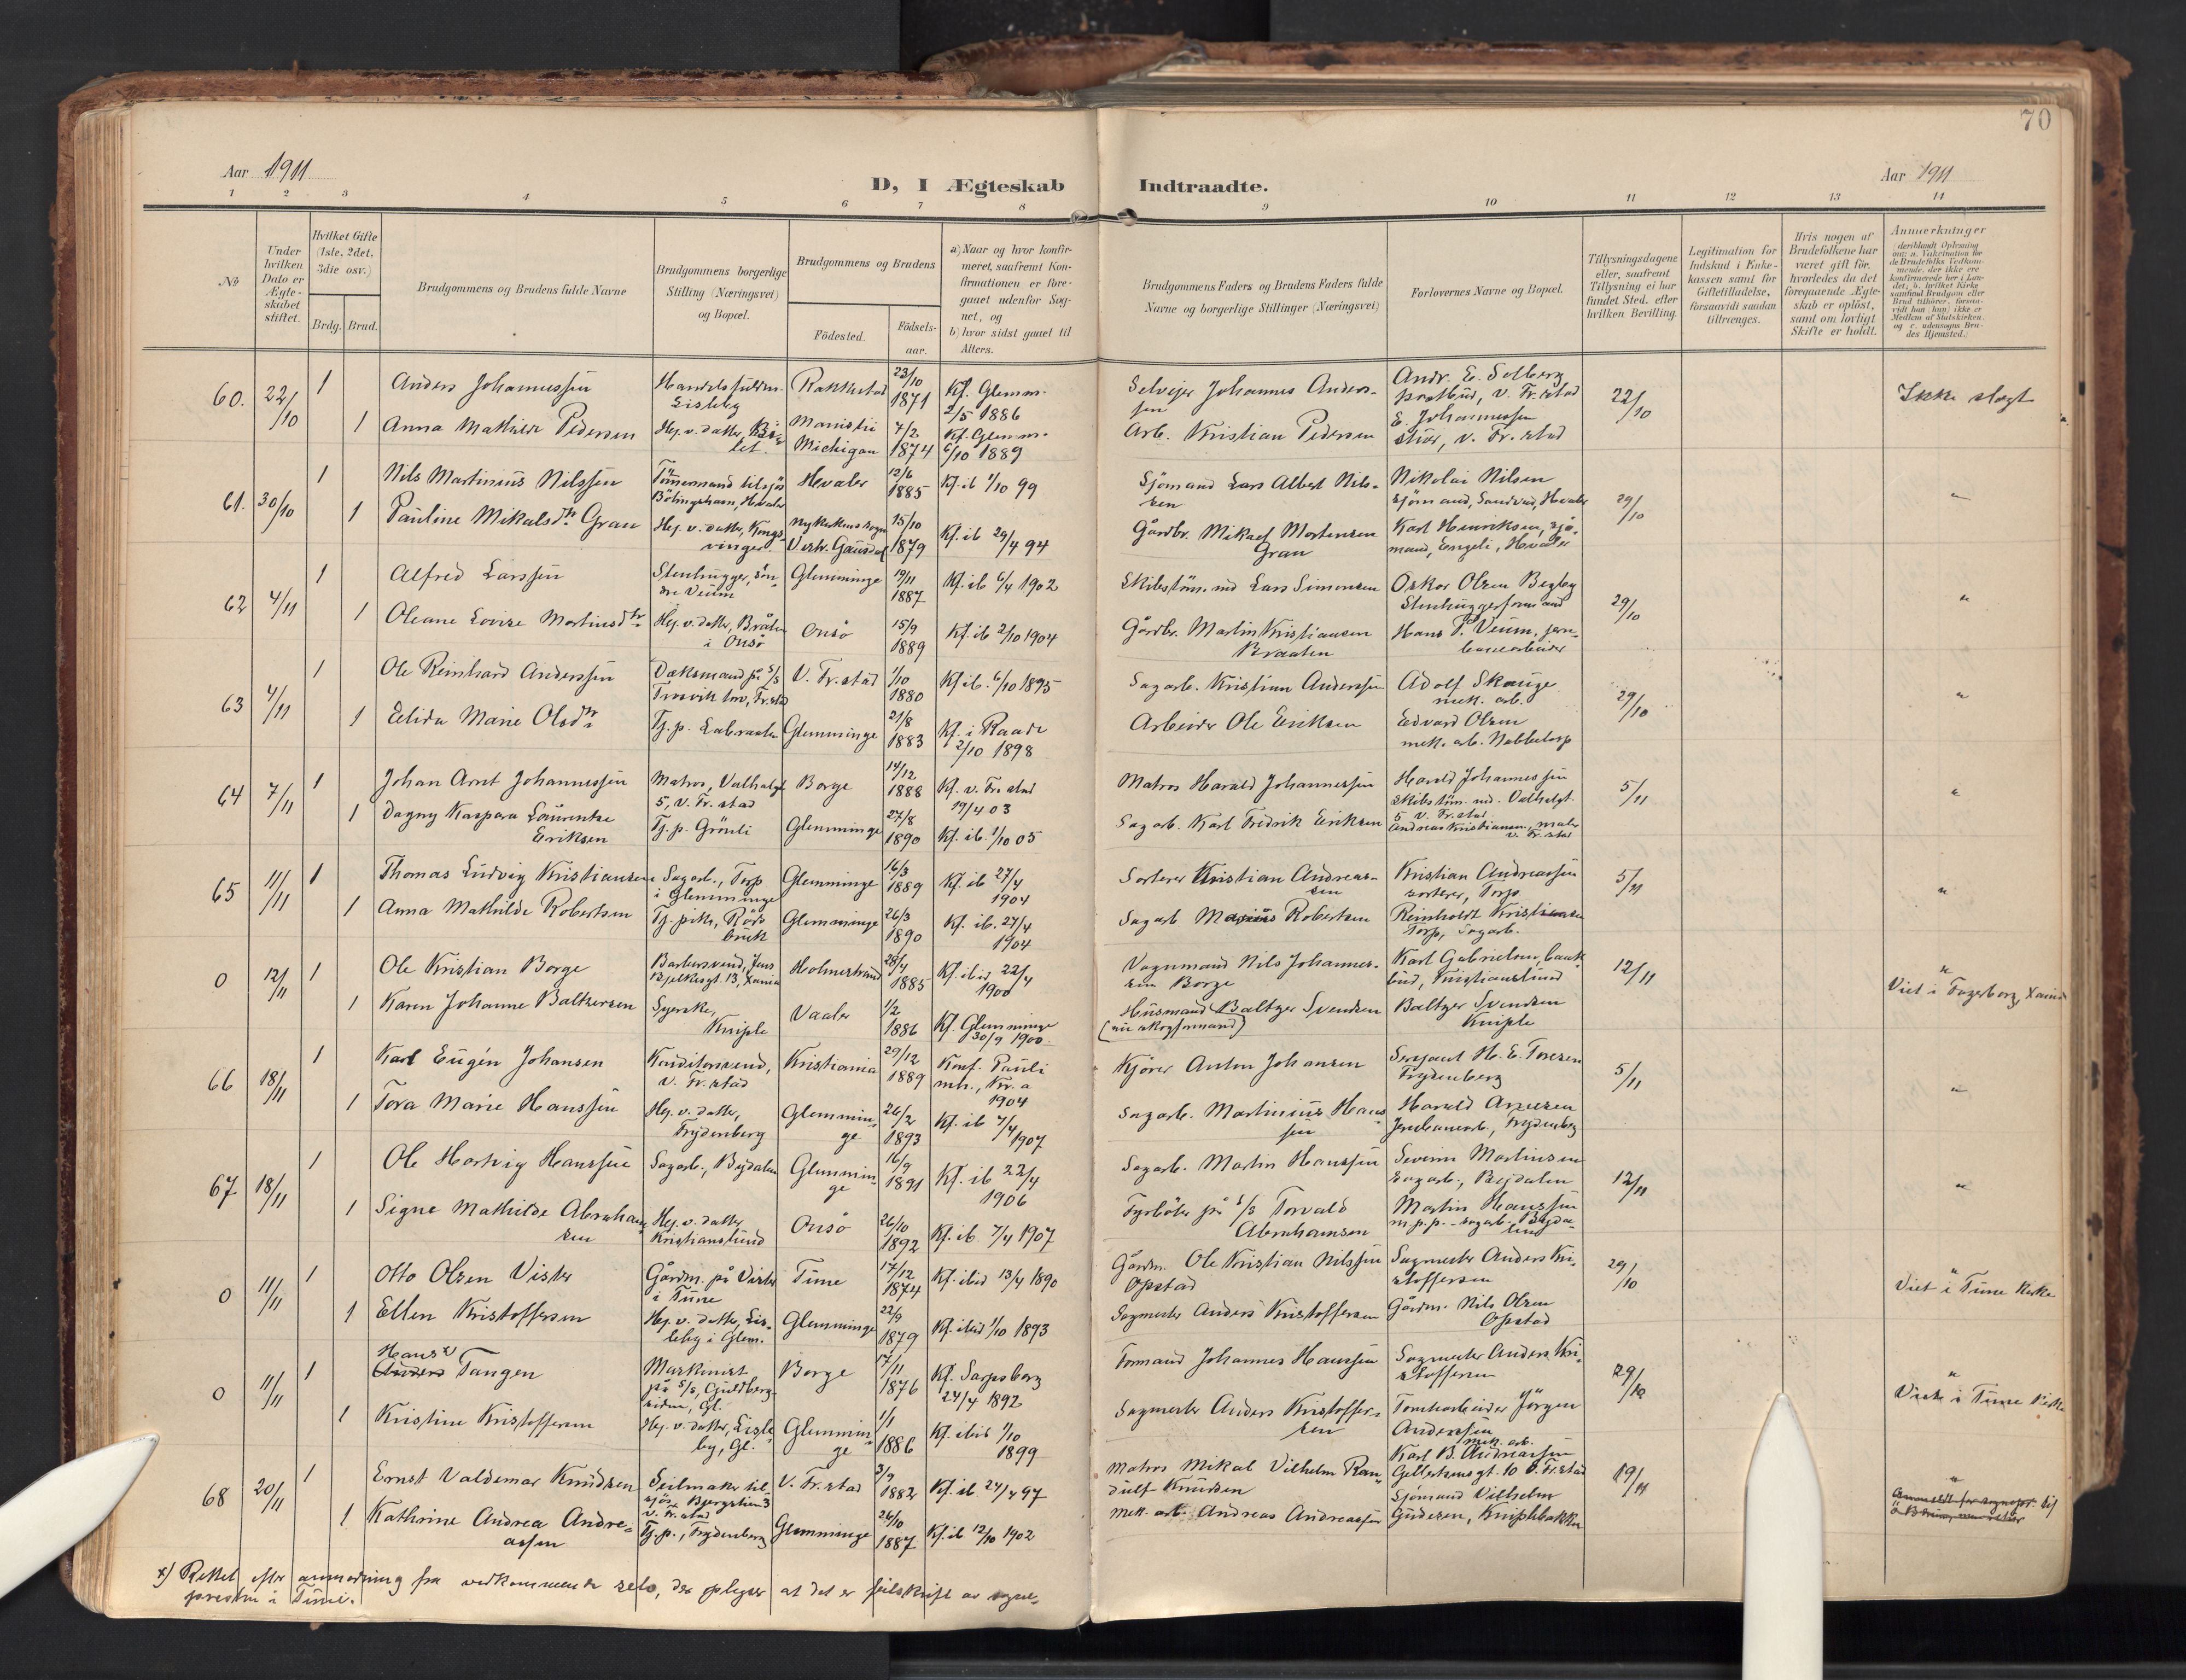 70
Aar 1911
D, I Ægteskab Indtraadte.
Aar 1911
1 2 3 4 5 6 7 8 9 10 11 12 13 14
No
Under hvilken Dato er Ægteskabet stiftet.
Hvilket Gifte (1ste, 2det, 3die osv.)
Brdg. Brud.
Brudgommens og Brudens fulde Navne
Brudgommens borgerlige Stilling (Næringsvei) og Bopæl.
Brudgommens og Brudens
Födested.
Födselsaar.
a) Naar og hvor konfirmeret, saafremt Konfirmationen er foregaaet udenfor Sognet, og
b) hvor sidst gaaet til Alters.
Brudgommens Faders og Brudens Faders fulde Navne og borgerlige Stillinger (Næringsvei)
Forlovernes Navne og Bopæl.
Tillysningsdagene eller, saafremt Tillysning ei har fundet Sted, efter hvilken Bevilling.
Legitimation for Indskud i Enkekassen samt for Giftetilladelse, forsaavidt saadan tiltrænges.
Hvis nogen af Brudefolkene har været gift för, hvorledes da det foregaaende Ægteskab er oplöst, samt om lovligt Skifte er holdt.
Anmerkninger
60. 22/10 1 Anders Johannessen Handelsfuldm. Lisleby Rakkestad 23/10 1871 Kf. Glemm. 2/5 1886 Selveier Johannes Anderssen Andr. E. Solberg postbud, v. Fr.stad 22/10 Ikke slegt
1 Anna Mathilde Pedersen Hej. v. datter, Manistee Michigan 7/2 1874 Kf. Glemm. 6/10 1889 Arb. Kristian Pedersen E. Johannessen v. Fr.stad
61. 30/10 1 Nils Martinius Nilssen Tømmermand tilsjøs Bölingshavn, Hvaler Hvaler 12/6 1885 Kf. ib 1/10 99 Sjömand Lars Albert Nilssen Nikolai Nilsen sjömand, Sandvad, Hvaler 29/10 "
1 Pauline Mikalsdtr Gran Hej. v. datter, Kongsvinger Nykirkens sogn Vestr. Gausdal 15/10 1879 Kf. ib 29/4 94 Gårdbr. Mikael Mortensen Gran Karl Henriksen, sjömand, Engeli, Hvaler
62 4/11 1 Alfred Larssen Stenhugger, söndre Veum Glemminge 19/11 1887 Kf. ib 6/4 1902 Skibstöm.md Lars Simonsen Oskar Olsen Begby Stenhuggerformand 29/10 "
1 Oleane Lovise Martinsdtr Hej. v. datter, Bråten i Onsö Onsö 15/9 1889 Kf. ib 2/10 1904 Gårdbr. Martin Kristiansen Braaten Hans P. Veum, jernbanearbeider
63 4/11 1 Ole Reinhard Anderssen Dæksmand på S/S Trosvik Fr.stad V. Fr.stad 1/10 1880 Kf. ib. 6/10 1895 Sagarb. Kristian Anderssen Adolf Skauge mek. arb. 29/10 "
1 Elida Marie Olsdtr Tj. p. Labraaten Glemminge 21/8 1883 Kf. i Raade 2/10 1898 Arbeider Ole Eriksen Edvard Olsen mek. arb. Nabbetorp
64 7/11 1 Johan Arnt Johannessen Matros, Valhalgt 5, V. Fr.stad Borge 14/12 1888 Kf. v. Fr.stad 19/4 03 Matros Harald Johannessen Harald Johannessen skibstöm.md. Valhalgt. 5 v. Fr.stad 5/11 "
1 Dagny Kaspara Laurentse Eriksen Tj. p. Grönli Glemminge 27/8 1890 Kf. ib. 1/10 05 Sagarb. Karl Fredrik Eriksen Andreas Kristiansen, maler v. Fr.stad
65 11/11 1 Thomas Ludvig Kristiansen Sagarb., Torp i Glemminge Glemminge 16/3 1889 Kf. ib 27/4 1904 Sorterer Kristian Andreassen Kristian Andreassen sorterer, Torp 5/11 "
1 Anna Mathilde Robertsen Tj. pike, Rödsbruk Glemminge 26/3 1890 Kf. ib. 27/4 1904 Sagarb. Marius Robertsen Reinholdt Kristiansen Torp, Sagarb.
0 12/11 1 Ole Kristian Borge Barbersvend, Jens Bjelkesgt. 13, Xania Holmestrand 28/4 1885 Kf. ibid 22/4 1900 Vognmand Nils Johannessen Borge Karl Gabrielsen, bankbud, Kristianslund 12/11 " Viet i Fagerborg, Xania
1 Karen Johanne Baltzersen Syerske, Kniple Vaaler 1/2 1886 Kf. Glemminge 30/9 1900. Husmand Baltzer Svendsen (nu skogformand) Baltzer Svendsen Kniple
66 18/11 1 Karl Eugén Johansen Konditorsvend, v. Fr.stad Kristiania 29/12 1889 Konf. Pauli mh., Kr.a 1904 Kjörer Anton Johansen Sersjant H. E. Torsen Frydenberg 5/11 "
1 Tora Marie Hanssen Hej. v. datter, Frydenberg Glemminge 26/2 1893 Kf. ib 7/4 1907 Sagarb. Martinius Hanssen Harald Arnesen Jernbanearb., Frydenberg
67 18/11 1 Ole Hartvig Hanssen Sagarb., Bydalen Glemminge 16/9 1891 Kf. ib 22/4 1906 Sagarb. Martin Hanssen Severin Martinsen sagarb., Bydalen 12/11 "
1 Signe Mathilde Abrahamsen Hej. v. datter Kristianslund Onsö 26/10 1892 Kf. ib 7/4 1907 Fyrböter på S/S Torvald Abrahamsen Martin Hanssen m.p.p. - sagarb.
0 11/11 1 Otto Olsen Vister Gårdm. på Vister i Tune Tune 17/12 1874 Kf. ibid 13/4 1890 Gårdm. Ole Kristian Nilssen Opstad Sagmester Anders Kristoffersen 29/10 " Viet i Tune kirke
1 Ellen Kristoffersen Hej. v. datter, Lisleby i Glem. Glemminge 22/9 1879 Kf. ibid 1/10 1893 Sagmester Anders Kristoffersen Gårdm. Nils Olsen Opstad
0 11/11 1 Hans x) Anders Tangen Maskinist på S/S, Guldbergsiden, Gl. Borge 17/11 1876 Kf. Sarpsborg 24/4 1892 Formand Johannes Hanssen Sagmester Anders Kristoffersen 29/10 " Viet i Tune kirke
1 Kristine Kristoffersen Hej. v. datter, Lisleby, Gl. Glemminge 1/1 1886 Kf. ibid 1/10 1899 Sagmester Anders Kristoffersen Tomtearbeider Jörgen Anderssen
68 20/11 1 Ernst Valdemar Knudsen Seilmaker tilsjös, Bjergstien 3 v. Fr.stad V. Fr.stad 3/7 1882 Kf. ib 24/4 97 Matros Mikal Vilhelm Randulf Knudsen Karl B. Andreassen mek. arb. Gellertsensgt. 10 V. Fr.stad 19/11 "
1 Kathrine Andrea Andreassen Tj. p., Frydenberg Glemminge 26/10 1887 Kf. ib 12/10 1902 Mek. arb. Andreas Andreassen Sjömand Vilhelm Gudesen, Kniplebakken
x) Rettet efter anmodning fra vedkommende selv, der oplyser at det er feilskrift av sognepresten i Tune.